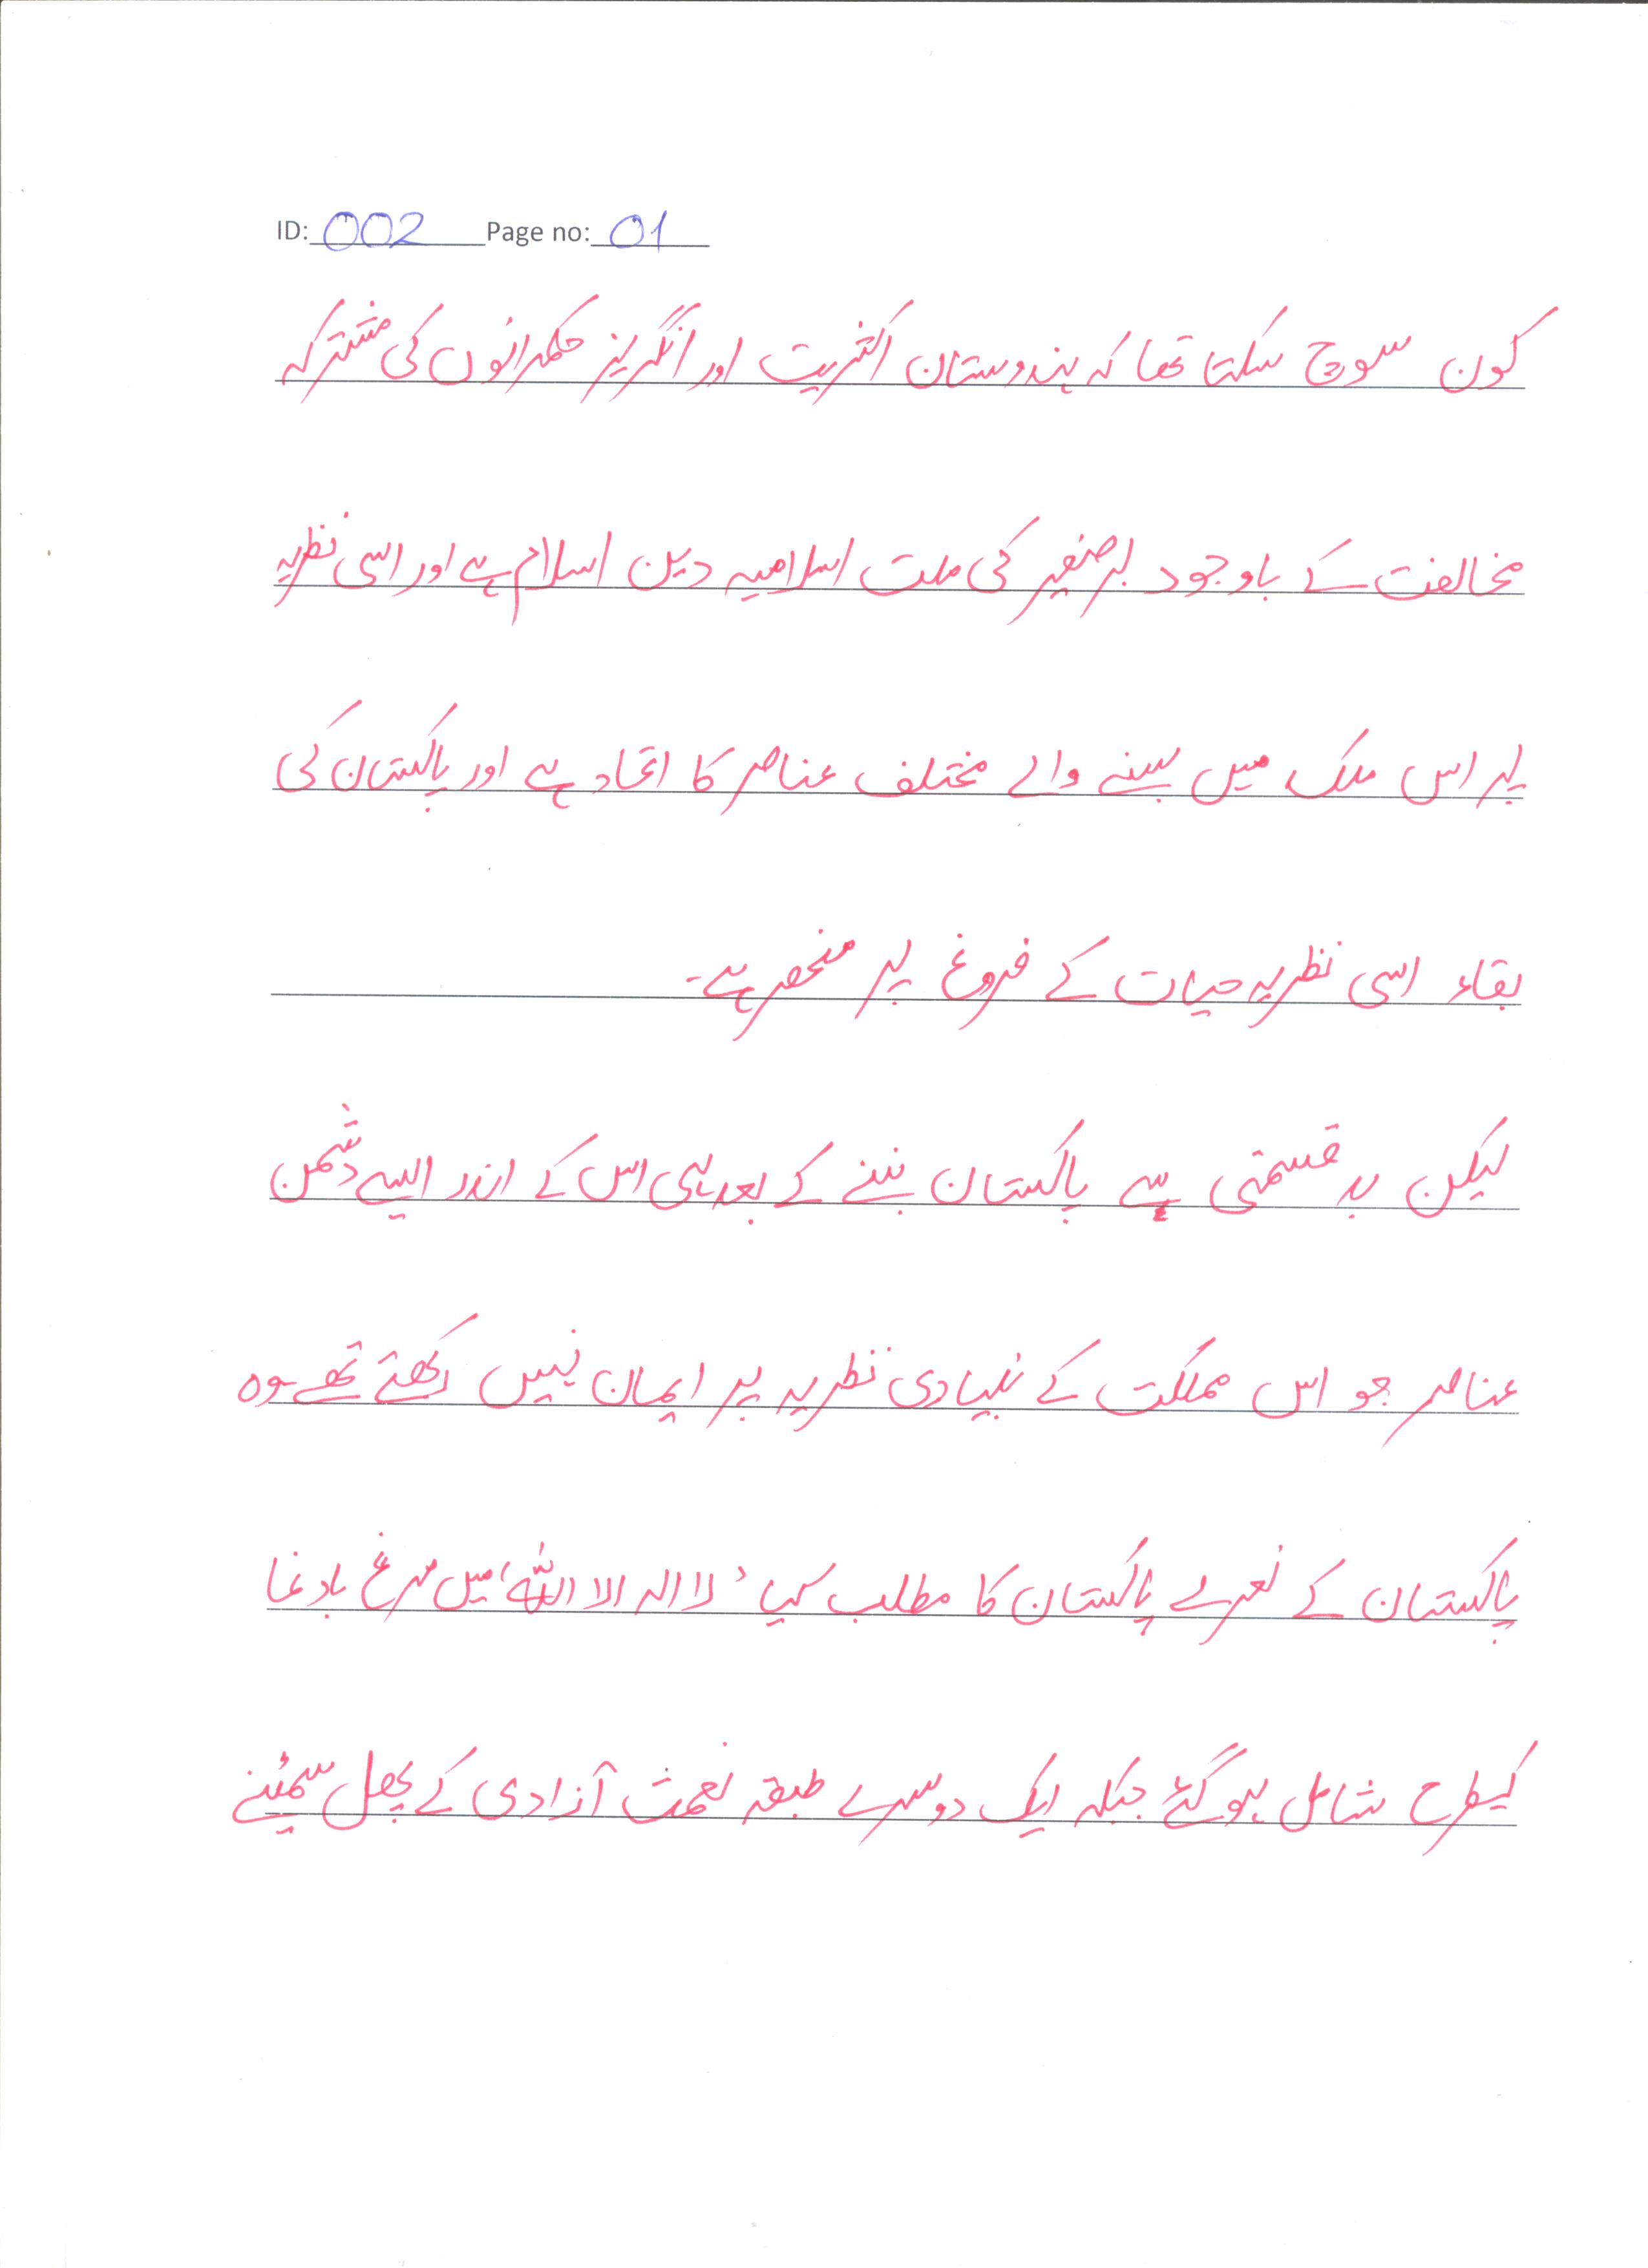 ID: 002 Page no: 01
کون سوچ سکتا تھا کہ ہندوستان اکثریت اور انگریز حکمرانوں کی مشترکہ
مخالفت کے باوجود برصغیر کی ملت اسلامیہ دین اسلام ہے اور اسی نظریہ
پر اس ملک میں بسنے والے مختلف عناصر کا اتحاد ہے اور پاکستان کی
بقاء اسی نظریہ حیات کے فروغ پر منحصر ہے۔
لیکن بدقسمتی سے پاکستان بننے کے بعد ہی اس کے اندر ایسے دشمن
عناصر جو اس مملکت کے بنیادی نظریہ پر ایمان نہیں رکھتے تھے۔ وہ
پاکستان کے نعرے پاکستان کا مطلب کیا ’لا الہ الا اللہ‘ میں مرغ بادنما
کیطرح شامل ہوگئے جبکہ ایک دوسرے طبقہ نعمت آزادی کے پھل سمٹنے